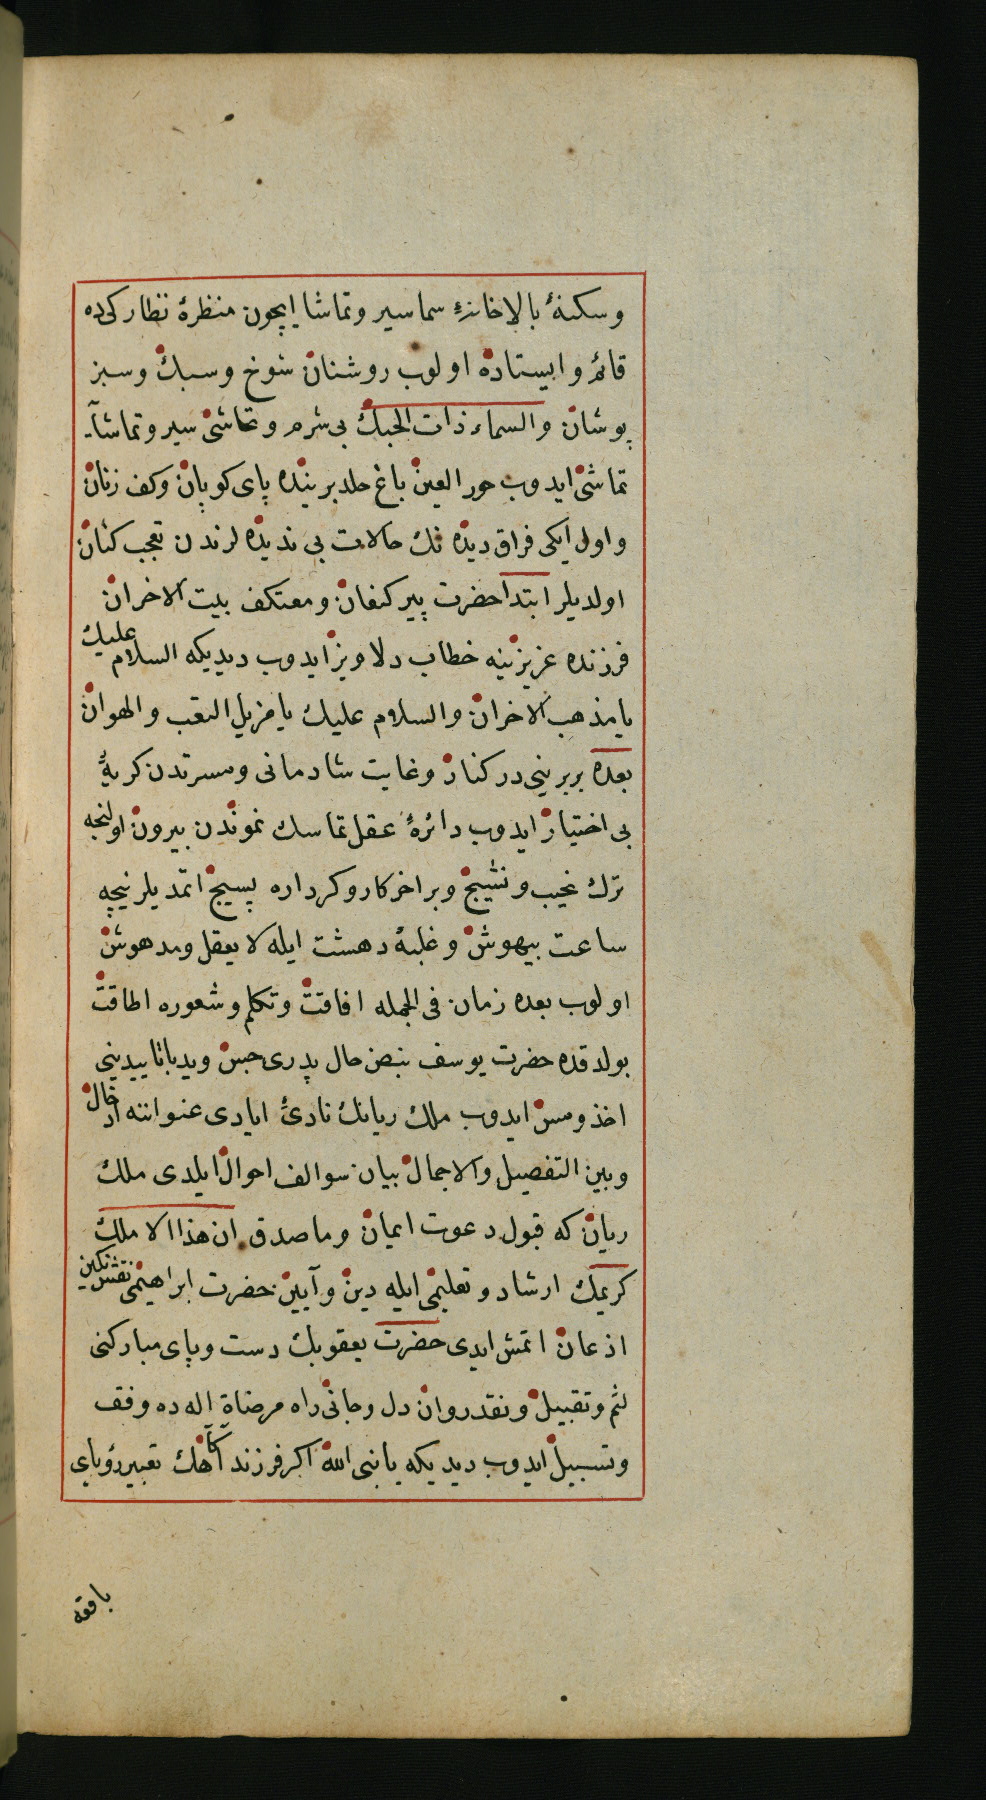 وسكنۀ بالاخانۀ سما سير وتماشا ايچون منظرۀ نظاركیده
قائم وايستاده اولوب روشنان شوخ وسبك وسبز
پوشان والسماء ذات الحبك بی شرم وتحاشی سير وتماشا
تماشی ايدوب حور العين باغ خلد بريننده پای كوبان وكف زنان
واول ايكی فراق ديده نك حالات بی نديده لرندن تعجب كنان
اولديلر ابتدا حضرت پير كنعان ومعتكف بيت الاخران
فرزنده عزيزينه خطاب دلاويز ايدوب ديديكه السلام عليك
يا مذهب الاخران والسلام عليك يا مزيل التعب والهوان
بعده بربرينی در كنار وغايت شادمانی ومسرتدن كريۀ
بی اختيار ايدوب دائرۀ عقل تماسك نموندن بيرون اولنجه
ترك نحيب ونشيج وبر اخر كار وكرداره پسيج اتمديلر نيچه
ساعت بيهوش وغلبۀ دهشت ايله لا يعقل ومدهوش
اولوب بعده زمان فی الجمله افاقت وتكلم وشعوره اطاقت
بولدقده حضرت يوسف نبض حال پدری حبس ويد باتاييدينی
اخذ ومس ايدوب ملك ريانك نادئ ايادی عنواننه ادخال
وبين التفصيل والاجمال بيان سوالف احوال ايلدی ملك
ريان كه قبول دعوت ايمان وما صدق ان هذا الا ملك
كريمك ارشاد وتعليمی ايله دين وآيين حضرت ابراهيمی نقش نكين
اذعان اتمش ايدی حضرت يعقوبك دست وپای مباركنی
لثم وتقبيل ونقد روان دل وجانی راه مرضاة اله ده وقف
وتسبيل ايدوب ديديكه يا نبی الله اكر فرزند آكاهك تعبير رؤيای
باققه